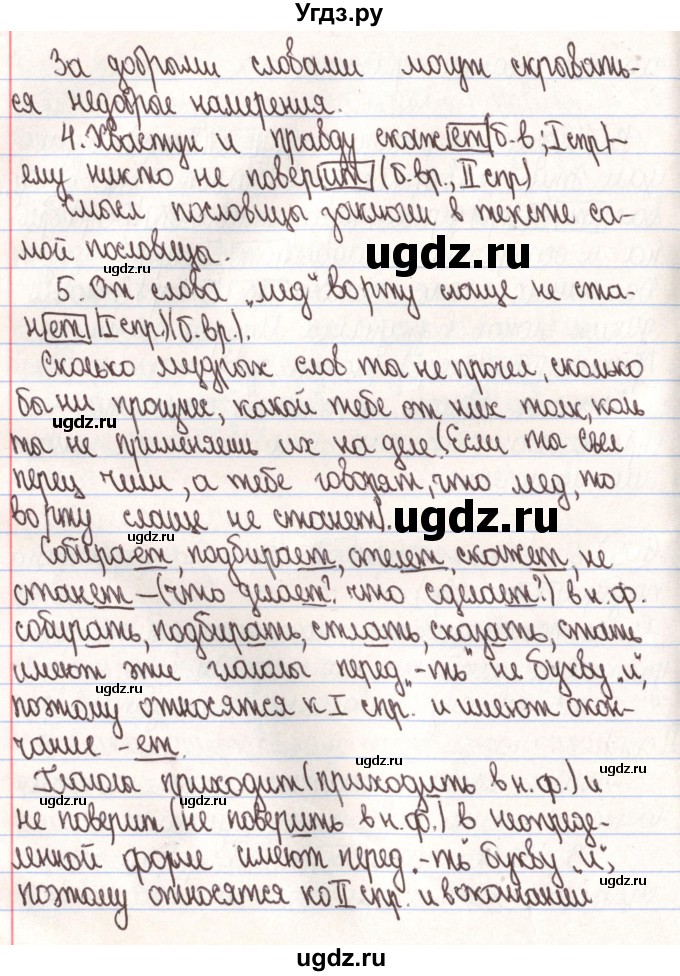 Угдз.ру
За добрыми словами могут скрывать-
ся недобрые намерения.
4. Хвастун и правду скажет (б.в; I спр) -
ему никто не поверит (б.вр., II спр)
Смысл пословицы заключен в тексте са-
мой пословицы.
ugdz.ru
ugdz.ru
5. От слова „мед" во рту слаще не ста-
нет (I спр) (б.вр.).
ugdz.ru
Сколько мудрых слов ты не прочел, сколько
бы ни произнес, какой тебе от них толк, коль
ugdz.ru
ты не применяешь их на деле (Если ты съел
перец чили, а тебе говорят, что мед, то
во рту слаще не станет).
ugdz.ru
Собирает, подбирает, стелет, скажет, не
станет - (что делает? что сделает?) в н.ф.
собирать, подбирать, стлать, сказать, стать
имеют эти глаголы перед „-ть" не букву „и",
ugdz.ru
поэтому относятся к I спр. и имеют окон-
чание -ет.
Глаголы приходит (приходить в н.ф.) и
ugdz.ru
ugdz.ru
не поверит (не поверить в н.ф.) в неопреде-
ленной форме имеют перед „-ть" букву „и",
поэтому относятся ко II спр. и в окончании
ugdz.ru